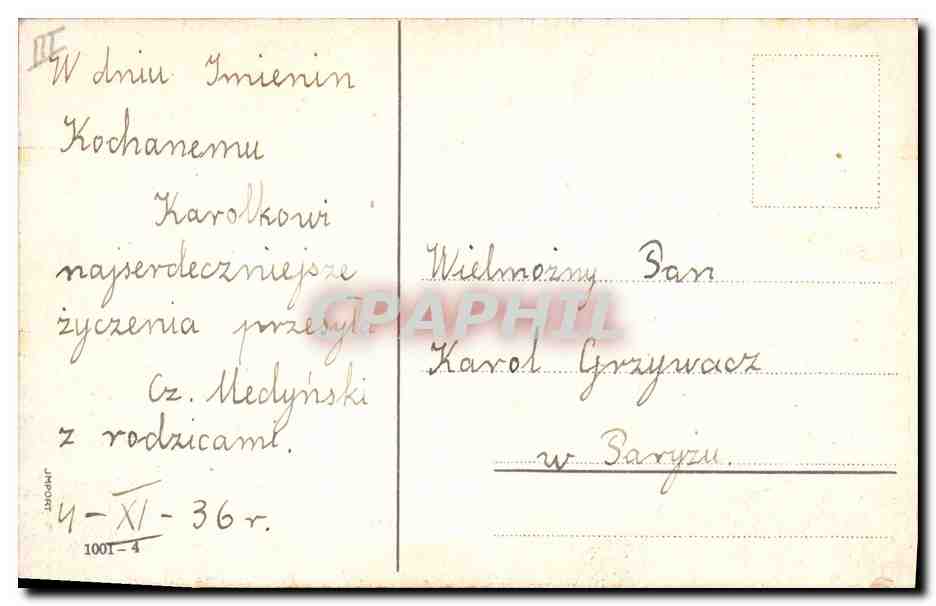 III
W dniu Imienin
Kochanemu
Karolkowi
najserdeczniejsze
życzenia przesyła
Cz. Medyński
z rodzicami.
4-XI-36 r.
JMPORT
1001-4
Wielmożny Pan
Karol Grzywacz
w Paryżu.
CPAPHIL